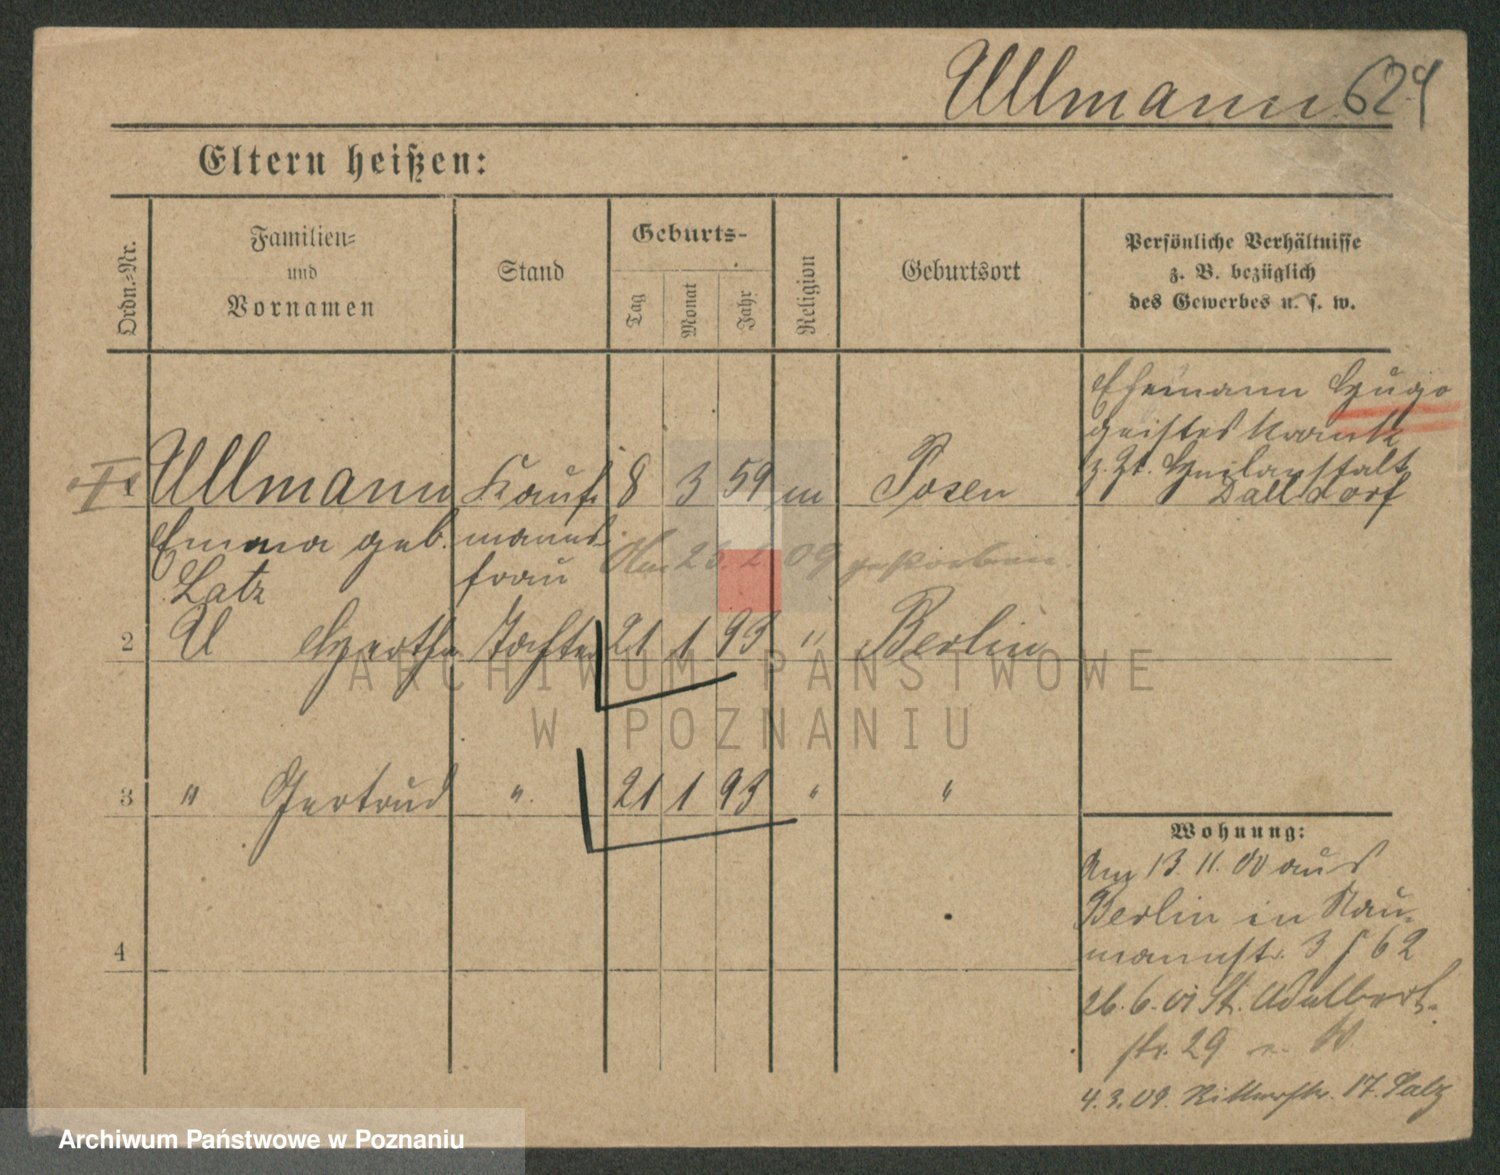 Ullmann 624
Eltern heißen:
Ordn.-Nr.
Familien-
und
Vornamen
Stand
Geburts-
Tag
Monat
Jahr
Religion
Geburtsort
Persönliche Verhältnisse
z. B. bezüglich
des Gewerbes u. s. w.
Ehemann Hugo
geisteskrank
z. Zt. Heilanstalt
Dalldorf
1 Ullmann Kauf- 8 3 59 m Posen
Emma geb. manns-
Latz frau
Am 25. 2. 09 gestorben.
2 U Hertha Tochter 21 1 93 " Berlin
3 " Gertrud " 21 1 93 " "
4
Wohnung:
Am 13. 11. 00 aus
Berlin in Nau-
mannstr. 3 62
26. 6. 01 St. Adalbert-
str. 29
4. 3. 09. Ritterstr. 17.
ARCHIWUM PAŃSTWOWE
W POZNANIU
Archiwum Państwowe w Poznaniu